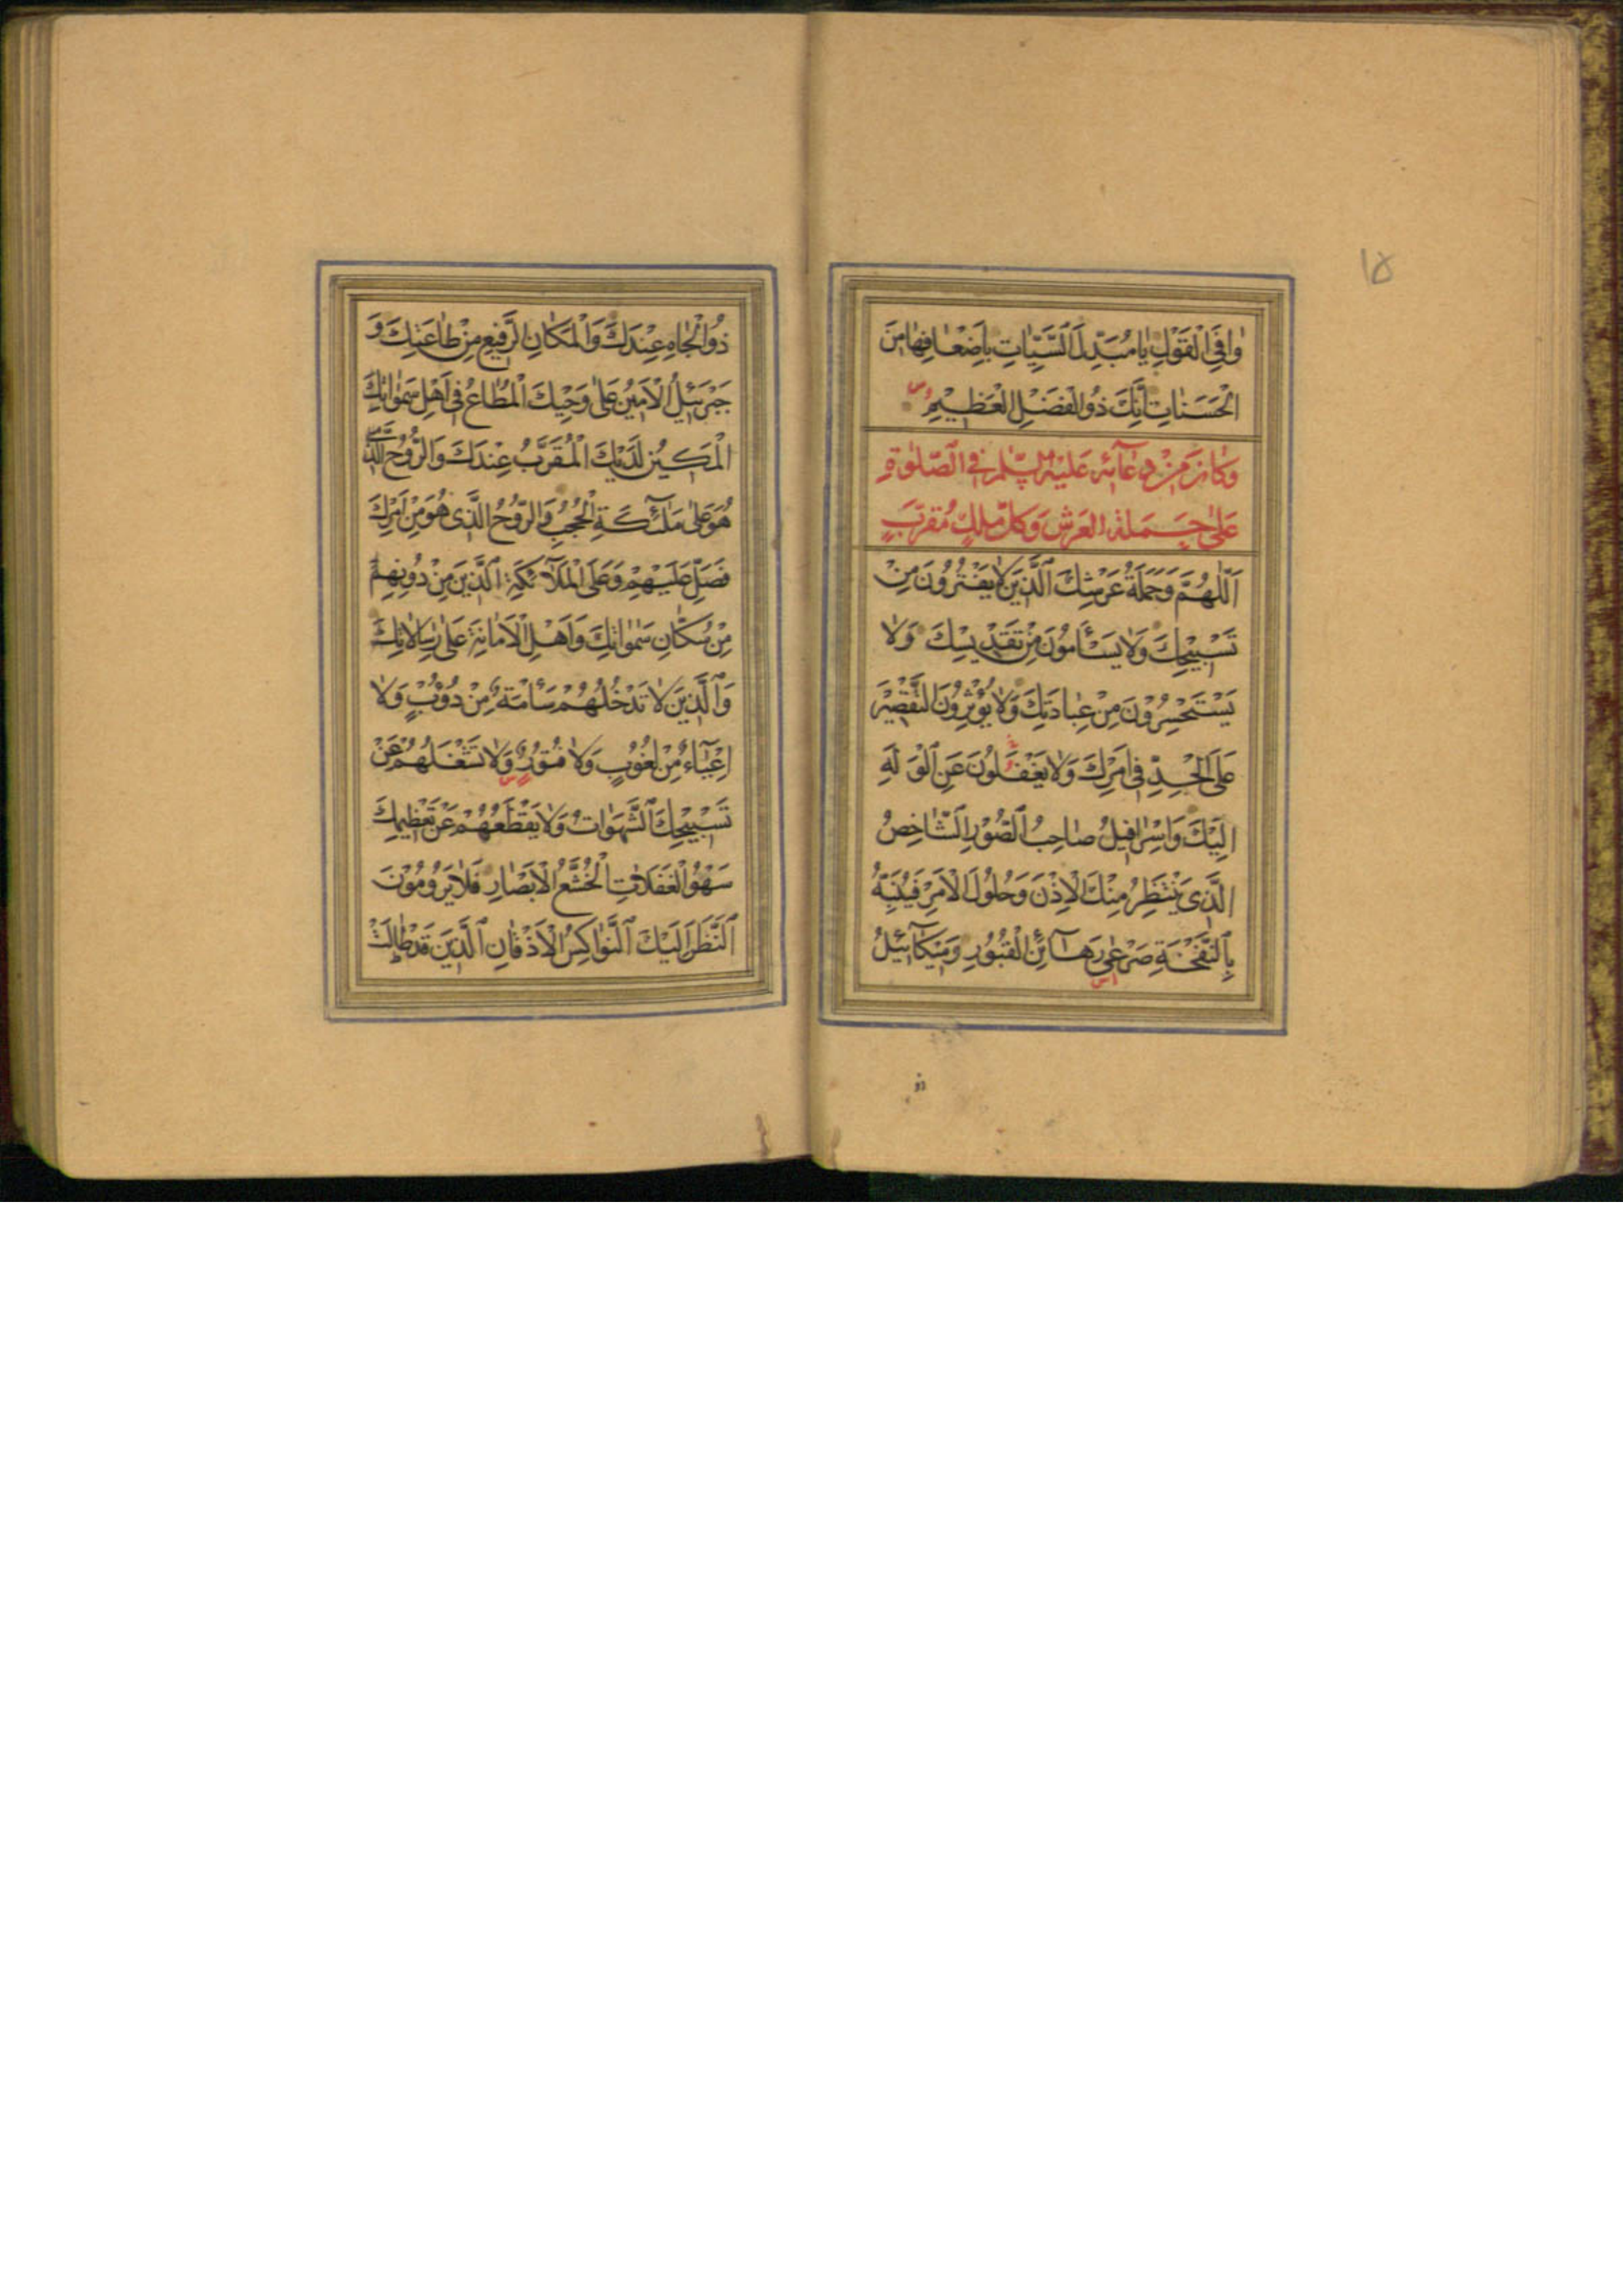 ١٥
وَافِيَ الْقَوْلِ يَا مُبَدِّلَ السَّيِّئَاتِ بِاَضْعَافِهَا مِنَ
الْحَسَنَاتِ اِنَّكَ ذُو الْفَضْلِ الْعَظِيْمِ
وَكَانَ مِنْ دُعَآئِهِ عَلَيْهِ السَّلَمُ فِي الصَّلٰوةِ
عَلٰى حَمَلَةِ الْعَرْشِ وَكُلِّ مَلَكٍ مُقَرَّبٍ
اَللّٰهُمَّ وَحَمَلَةُ عَرْشِكَ الَّذِيْنَ لَا يَفْتُرُوْنَ مِنْ
تَسْبِيْحِكَ وَلَا يَسْأَمُوْنَ مِنْ تَقْدِيْسِكَ وَلَا
يَسْتَحْسِرُوْنَ مِنْ عِبَادَتِكَ وَلَا يُؤْثِرُوْنَ التَّقْصِيْرَ
عَلَى الْجِدِّ فِي اَمْرِكَ وَلَا يَغْفُلُوْنَ عَنِ الْوَلَهِ
اِلَيْكَ وَاِسْرَافِيْلُ صَاحِبُ الصُّوْرِ الشَّاخِصُ
الَّذِى يَنْتَظِرُ مِنْكَ الْاِذْنَ وَحُلُوْلَ الْاَمْرِ فَيُنَبِّهُ
بِالنَّفْخَةِ صَرْعٰى رَهَآئِنِ الْقُبُوْرِ وَمِيْكَآئِيْلُ
ذو
ذُو الْجَاهِ عِنْدَكَ وَالْمَكَانِ الرَّفِيْعِ مِنْ طَاعَتِكَ وَ
جَبْرَئِيْلُ الْاَمِيْنُ عَلٰى وَحْيِكَ الْمُطَاعُ فِي اَهْلِ سَمٰوَاتِكَ
الْمَكِيْنُ لَدَيْكَ الْمُقَرَّبُ عِنْدَكَ وَالرُّوْحُ الَّذِى
هُوَ عَلٰى مَلٰٓئِكَةِ الْحُجُبِ وَالرُّوْحُ الَّذِى هُوَ مِنْ اَمْرِكَ
فَصَلِّ عَلَيْهِمْ وَعَلَى الْمَلَآئِكَةِ الَّذِيْنَ مِنْ دُوْنِهِمْ
مِنْ سُكَّانِ سَمٰوَاتِكَ وَاَهْلِ الْاَمَانَةِ عَلٰى رِسَالَاتِكَ
وَالَّذِيْنَ لَا تَدْخُلُهُمْ سَأْمَةٌ مِنْ دُؤُبٍ وَلَا
اِعْيَآءٌ مِنْ لُغُوْبٍ وَلَا فُتُوْرٌ وَلَا تَشْغَلُهُمْ عَنْ
تَسْبِيْحِكَ الشَّهَوَاتُ وَلَا يَقْطَعُهُمْ عَنْ تَعْظِيْمِكَ
سَهْوُ الْغَفَلَاتِ الْخُشَّعُ الْاَبْصَارِ فَلَا يَرُوْمُوْنَ
النَّظَرَ اِلَيْكَ النَّوَاكِسُ الْاَذْقَانِ الَّذِيْنَ قَدْ طَالَتْ